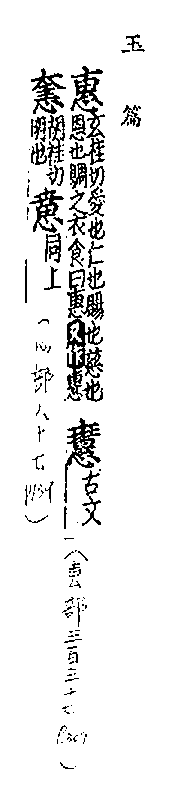 玉篇
惠 玄桂切愛也仁也賜也慈也
恩也賙之衣食曰惠又作惠
古文
(叀部三百三十七
胡桂切
明也
同上
(心部八十七